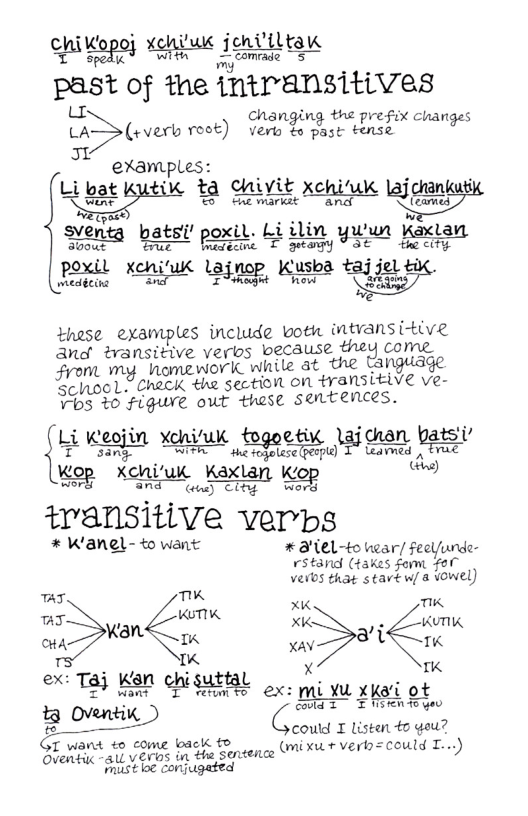 chi k'opoj xchi'uk jchi'iltak
I speak with my comrade s
past of the intransitives
LI
LA (+verb root)
JI
Changing the prefix changes
verb to past tense
examples:
Li bat kutik ta chivit xchi'uk lajchankutik
went to the market and learned
we (past) we
sventa batsi' poxil. Li ilin yu'un kaxlan
about true medecine I get angry at the city
poxil xchi'uk lajnop k'usba taj jel tik.
medecine and I thought how are going
to change
we
these examples include both intransi-tive
and transitive verbs because they come
from my homework while at the language
school. Check the section on transitive ve-
rbs to figure out these sentences.
Li k'eojin xchi'uk togoetik lajchan batsi'
I sang with the togolese (people) I learned ^ true
(the)
k'op xchi'uk kaxlan k'op
word and (the) city word
transitive verbs
* k'anel - to want
TAJ
TAJ
CHA
TS
k'an
TIK
KUTIK
IK
IK
ex: Taj k'an chi suttal
I want I return to
ta Oventik
to
I want to come back to
Oventik - all verbs in the sentence
must be conjugated
* a'iel - to hear/feel/unde-
rstand (takes form for
verbs that start w/ a vowel)
XK
XK
XAV
X
a'i
TIK
KUTIK
IK
IK
ex: mi xu xka'i ot
could I I listen to you
could I listen to you?
(mi xu + verb = could I...)